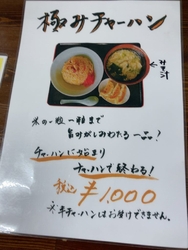 極みチャーハン
みそ汁
米の一粒一粒まで
旨みがしみわたる一品!
チャーハンに始まり
チャーハンで終わる!
税込 ¥1,000
※半チャーハンはお受けできません。